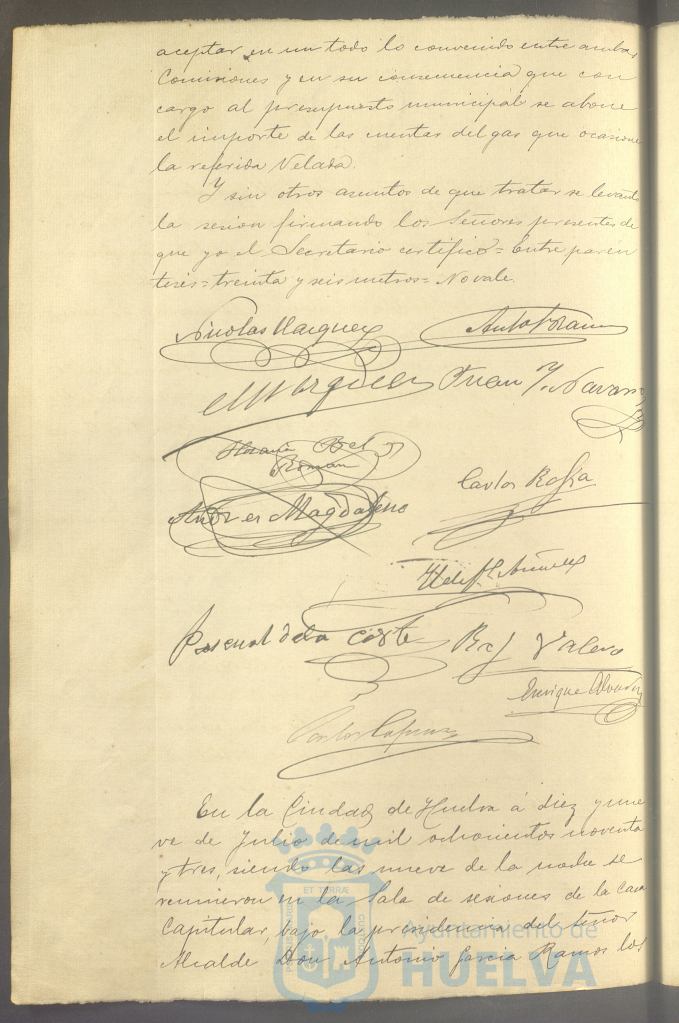 aceptar en un todo lo convenido entre ambas
Comisiones y en su consecuencia que con
cargo al presupuesto municipal se abone
el importe de las cuentas del gas que ocasione
la referida Velada.
Y sin otros asuntos de que tratar se levantó
la sesion firmando los Señores presentes de
que yo el Secretario certifico = Entre paren
tesis = treinta y seis metros = No vale.
Nicolas Vazquez
Juan J. Navarro
Roman
Andres Magdaleno
Carlos
Pascual de la Corte
Raf Valero
Enrique
En la Ciudad de Huelva á diez y nue
ve de Julio de mil ochocientos noventa
y tres, siendo las nueve de la noche se
reunieron en la Sala de sesiones de la Casa
Capitular, bajo la presidencia del Señor
Alcalde Don Antonio Garcia Ramos los
ET TERRÆ
Ayuntamiento de
HUELVA